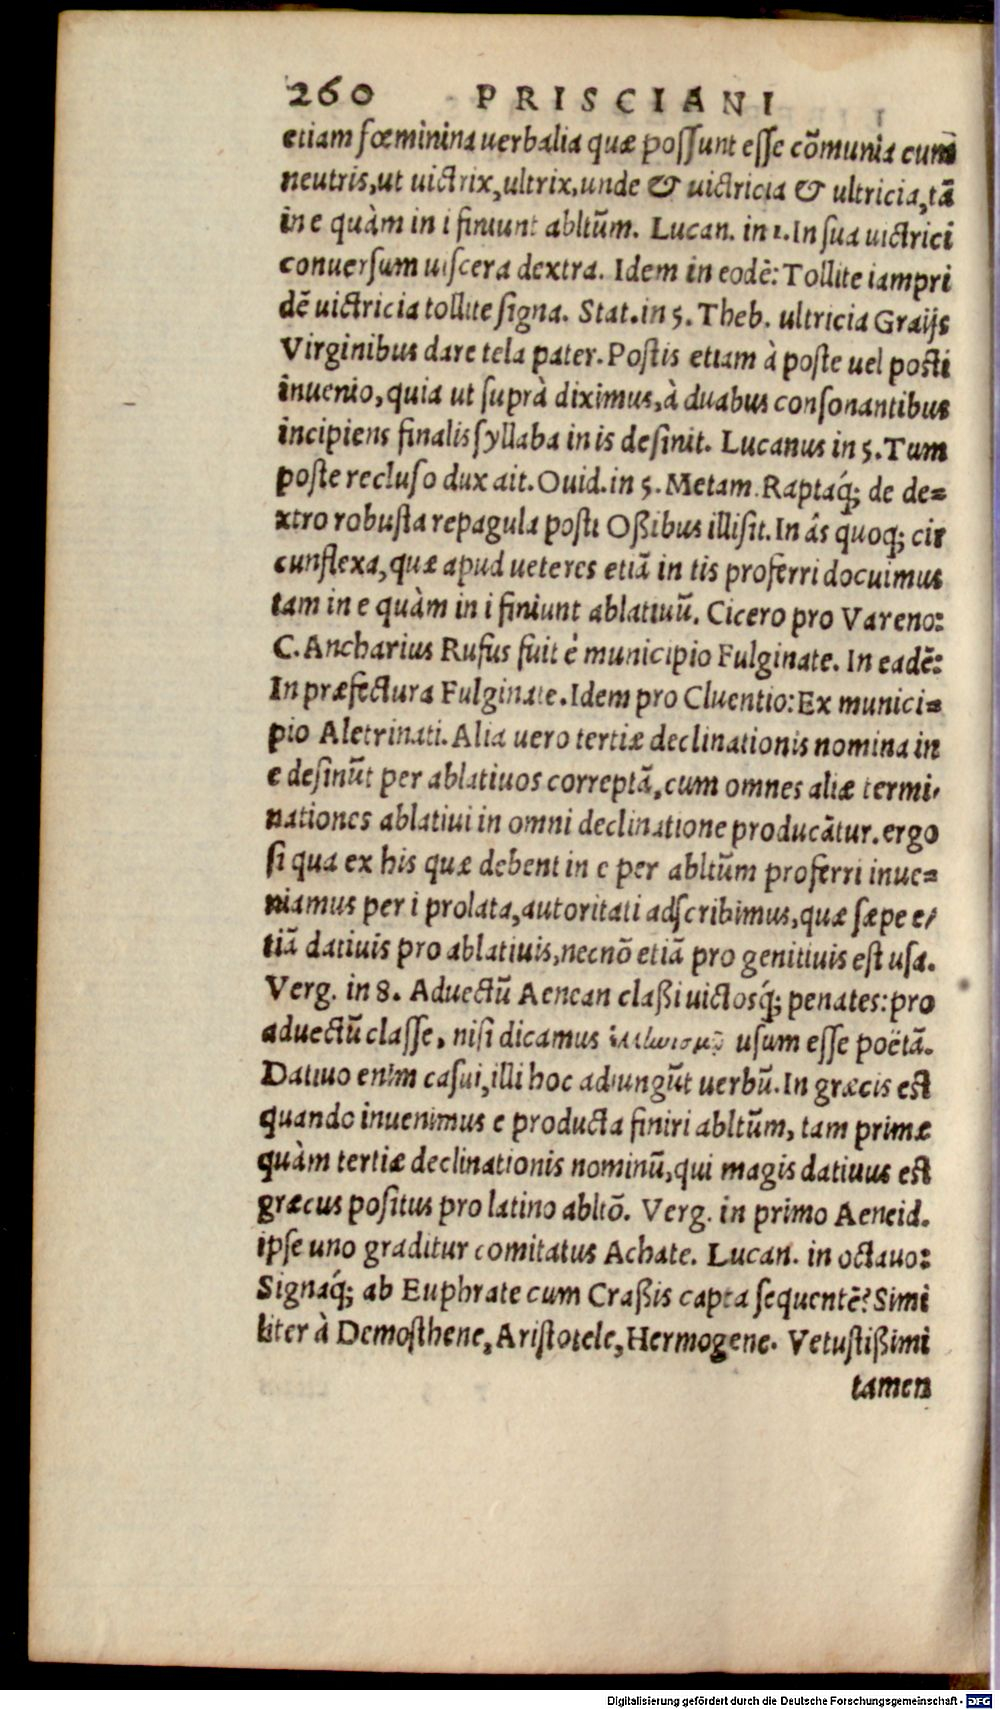 260 PRISCIANI
etiam fœminina uerbalia quæ possunt esse cõmunia cum
neutris, ut uictrix, ultrix, unde & uictricia & ultricia, tã
in e quàm in i finiunt abltũm. Lucan. in 1. In sua uictrici
conuersum uiscera dextra. Idem in eodẽ: Tollite iampri
dẽ uictricia tollite signa. Stat. in 5. Theb. ultricia Graijs
Virginibus dare tela pater. Postis etiam à poste uel posti
inuenio, quia ut suprà diximus, à duabus consonantibus
incipiens finalis syllaba in is desinit. Lucanus in 5. Tum
poste recluso dux ait. Ouid. in 5. Metam. Raptaq́; de de=
xtro robusta repagula posti Oßibus illisit. In âs quoq; cir
cunflexa, quæ apud ueteres etiã in tis proferri docuimus
tam in e quàm in i finiunt ablatiuũ. Cicero pro Vareno:
C. Ancharius Rufus fuit è municipio Fulginate. In eadẽ:
In præfectura Fulginate. Idem pro Cluentio: Ex munici=
pio Aletrinati. Alia uero tertiæ declinationis nomina in
e desinũt per ablatiuos correptã, cum omnes aliæ termi,
nationes ablatiui in omni declinatione producãtur. ergo
si qua ex his quæ debent in e per abltũm proferri inue=
niamus per i prolata, autoritati adscribimus, quæ sæpe e,
tiã datiuis pro ablatiuis, necnõ etiã pro genitiuis est usa.
Verg. in 8. Aduectũ Aenean claßi uictosq́; penates: pro
aduectũ classe, nisi dicamus usum esse poëtã.
Datiuo enim casui, illi hoc adiungũt uerbũ. In græcis est
quando inuenimus e producta finiri abltũm, tam primæ
quàm tertiæ declinationis nominũ, qui magis datiuus est
græcus positus pro latino abltõ. Verg. in primo Aeneid.
ipse uno graditur comitatus Achate. Lucan. in octauo:
Signaq́; ab Euphrate cum Craßis capta sequentẽ? Simi
liter à Demosthene, Aristotele, Hermogene. Vetustißimi
tamen
Digitalisierung gefördert durch die Deutsche Forschungsgemeinschaft - DFG